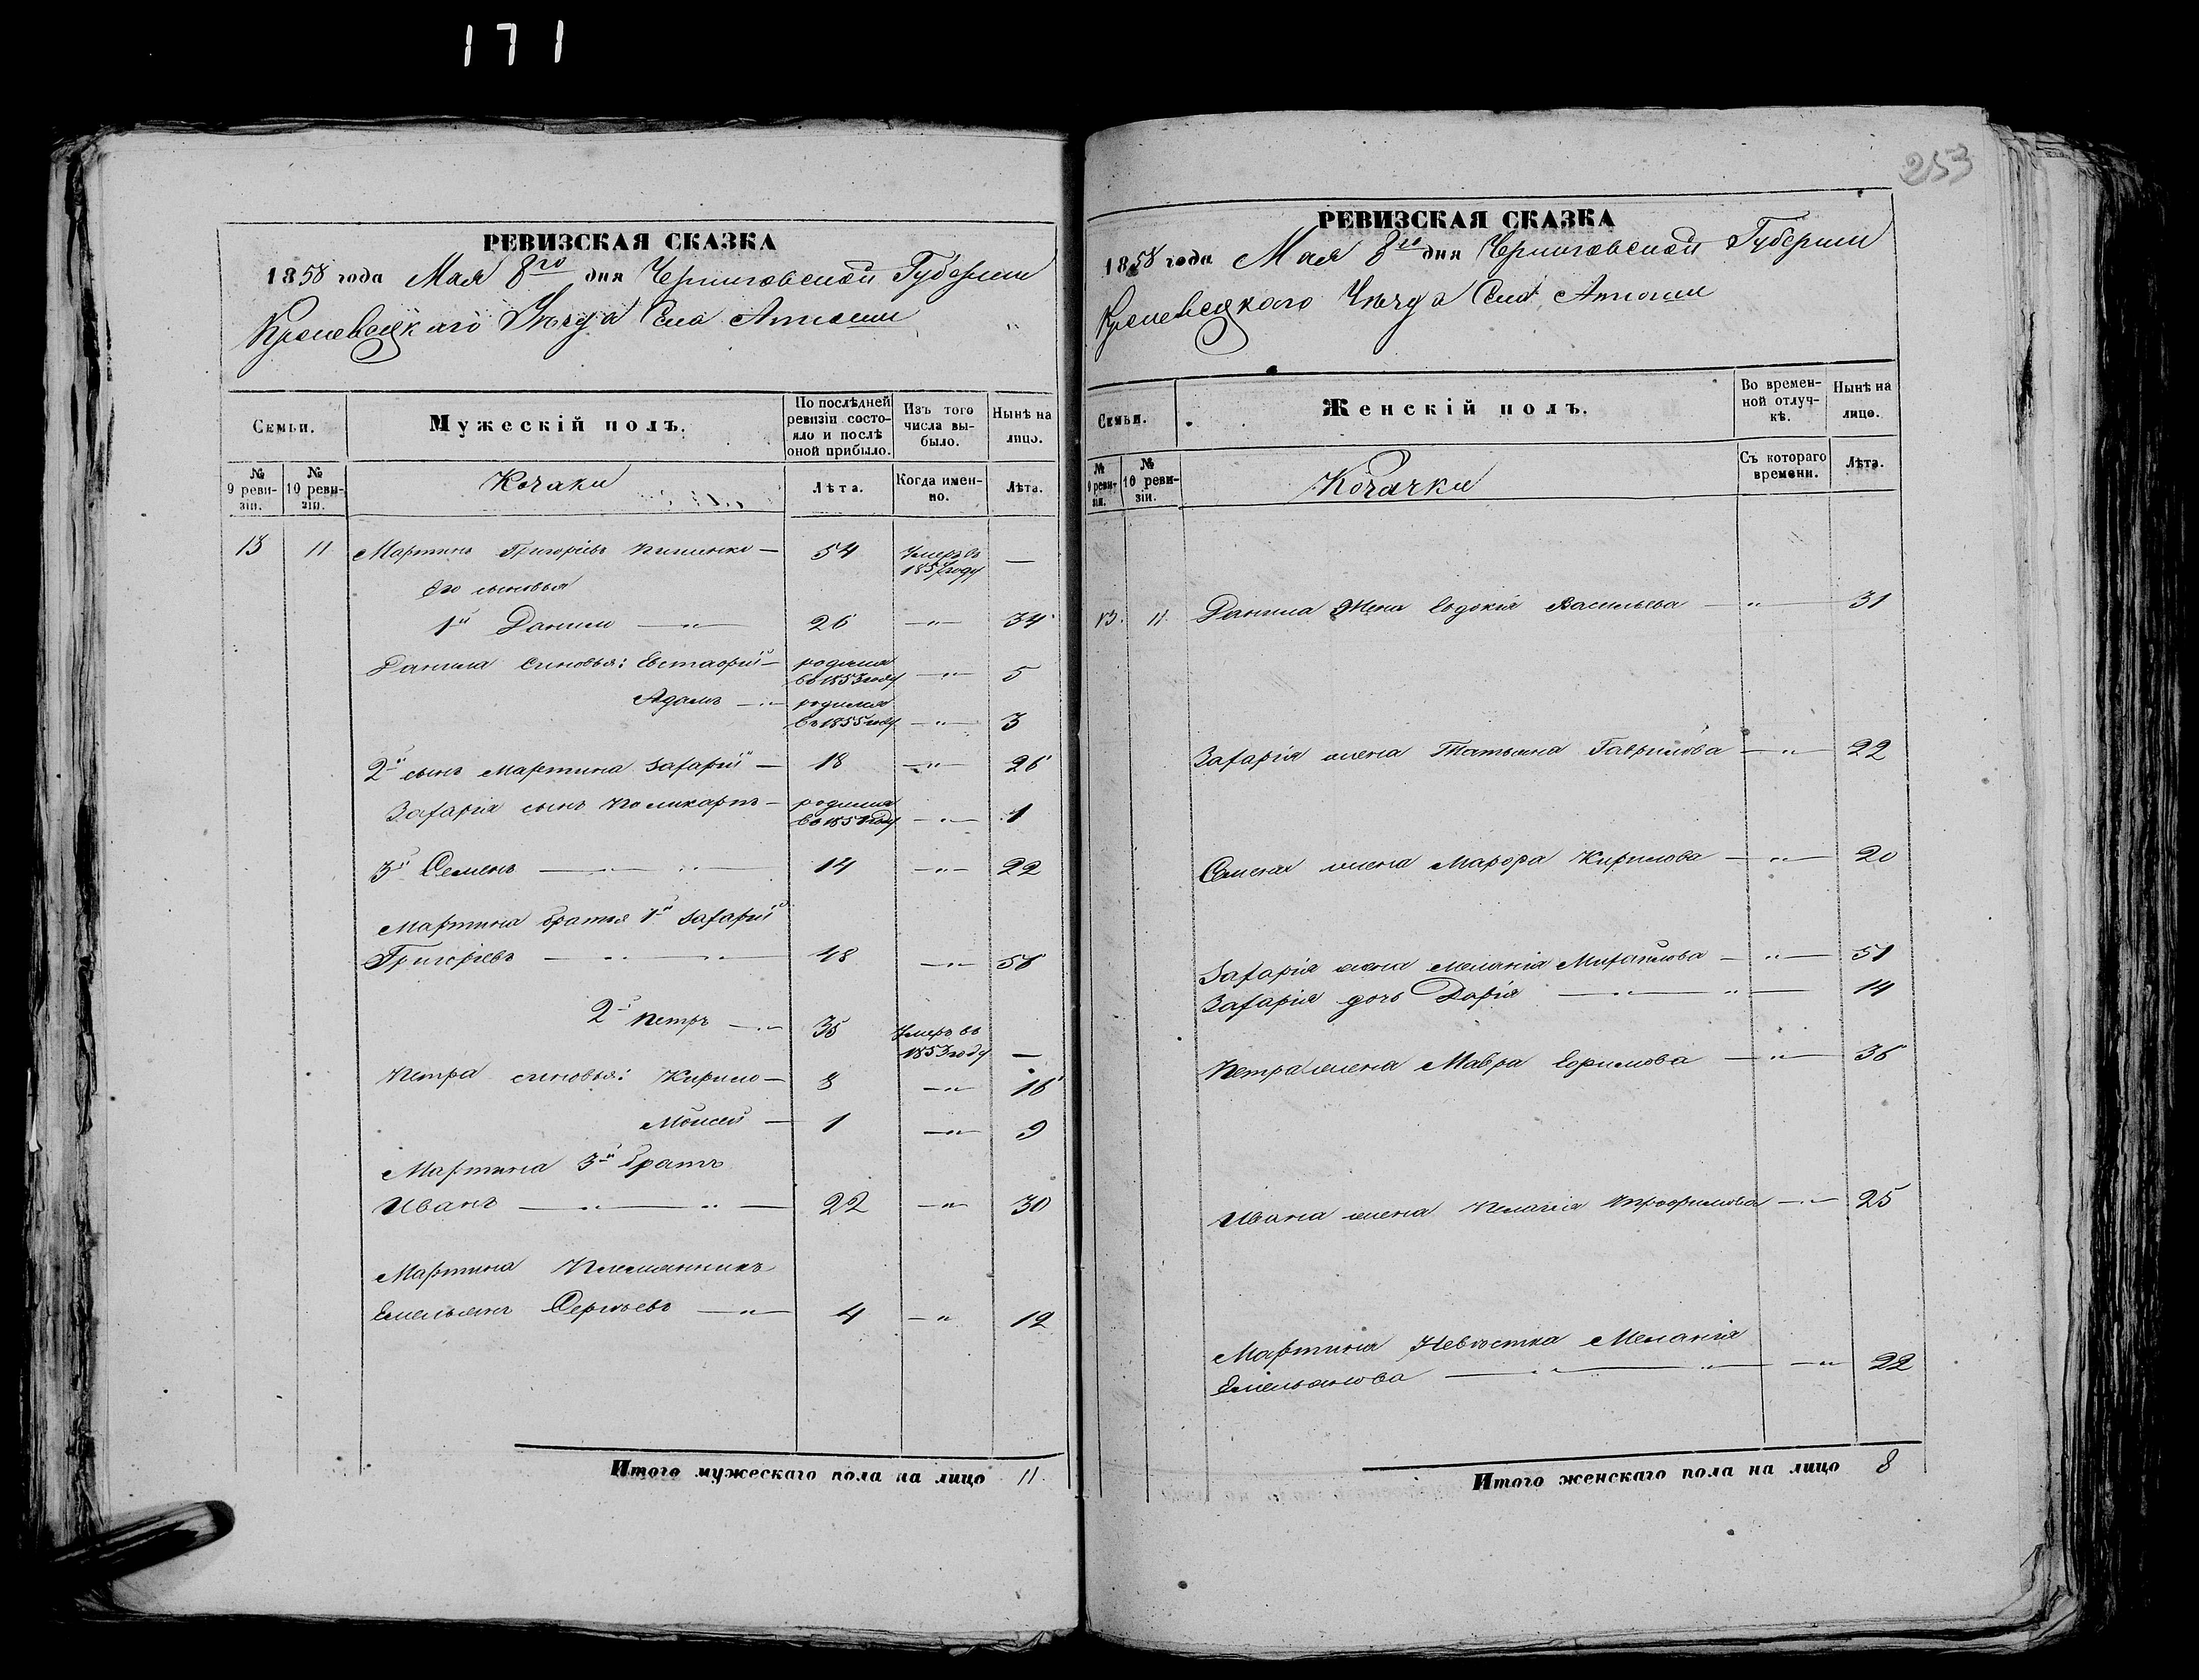 171
253
РЕВИЗСКАЯ СКАЗКА
1858 года Мая 8го дня Черниговской Губернии
Кролевецкаго Уѣзда Села
Семьи.
Мужескій полъ.
По послѣдней ревизіи состояло и послѣ оной прибыло.
Изъ того числа выбыло.
Нынѣ на лицо.
№ 9 ревизіи.
№ 10 ревизіи.
Козаки
Лѣта.
Когда именно.
Лѣта.
13 11 Мартинъ Григоріевъ — 54 Умеръ въ 1857 году —
Его сыновья
1й Данило — " — 26 — " — 34
Данила синовья: Евстафій — родился въ 1853 году — " — 5
Адамъ — " — родился въ 1855 году — " — 3
2й сынъ Мартина Захарій — 18 — " — 26
Захарія сынъ Поликарпъ — родился въ 1857 году — " — 1
3й Семенъ — " — 14 — " — 22
Мартина братья 1й Захарій
Григоріевъ — " — " — 48 — " — 56
2й Петръ — " — 35 Умеръ въ 1853 году —
Петра синовья: Кирило — 8 — " — 16
Моисей — 1 — " — 9
Мартина 3й братъ
Иванъ — " — " — 22 — " — 30
Мартина Племянникъ
Емельянъ Сергѣевъ — " — 4 — " 12
Итого мужескаго пола на лицо 11.
РЕВИЗСКАЯ СКАЗКА
1858 года Мая 8го дня Черниговской Губернии
Кролевецкаго Уѣзда Села
Семьи.
Женскій полъ.
Во временной отлучкѣ.
Нынѣ на лицо.
№ 9 ревизіи.
№ 10 ревизіи.
Козачки
Съ котораго времени.
Лѣта.
13. 11. Данила Жена Евдокія Васильева — " — 31
Захарія жена Татьяна Гаврилова — " — 22
Семена жена Марфа Кирилова — " — 20
Захарія жена Меланія Михайлова — " — 51
Захарія дочь Дарія — " — " — 14
Петра жена Мавра Ефимова — " — 36
Ивана жена Пелагія Трофимова — " — 25
Мартина Невѣстка Меланія
Емельянова — " — " — " 22
Итого женскаго пола на лицо 8